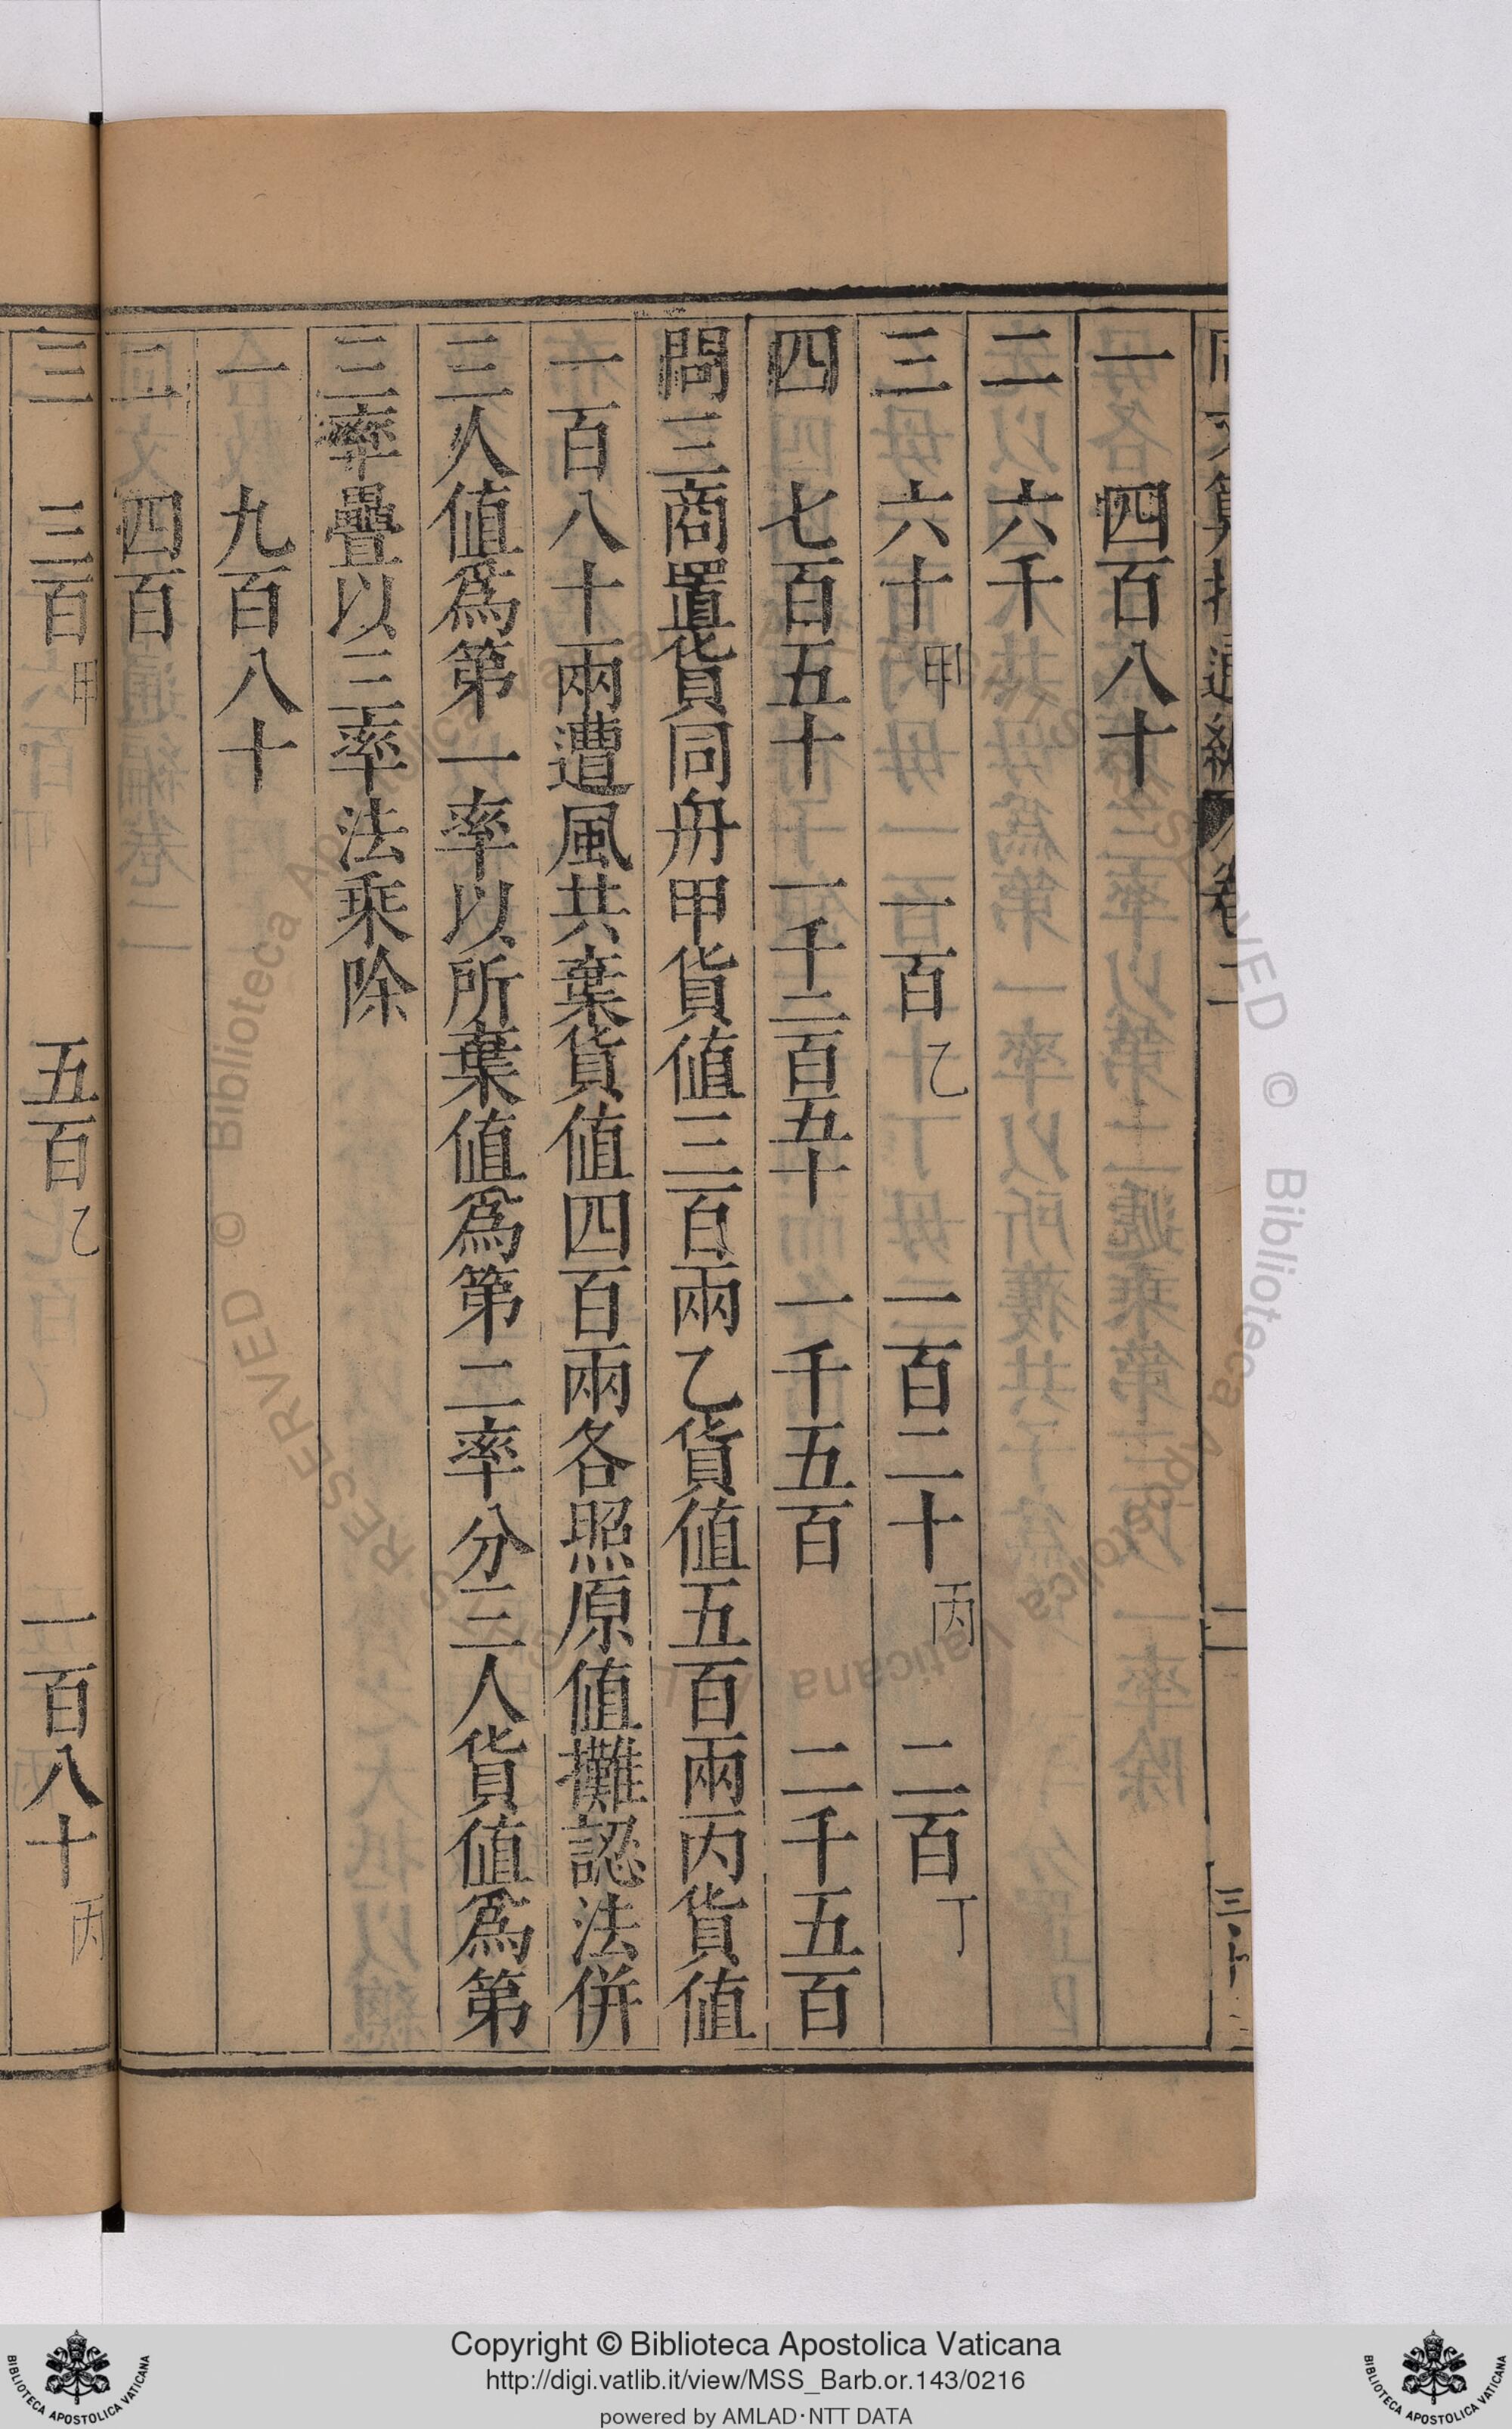 一　四百八十
二　六千
三　六十甲　一百乙　一百二十丙　二百丁
四　七百五十　一千二百五十　一千五百　二千五百
問三商置貨同舟甲貨值三百兩乙貨值五百兩丙貨值
一百八十兩遭風共棄貨值四百兩各照原值攤認法併
三人值爲第一率以所棄值爲第二率分三人貨值爲第
三率疊以三率法乘除
一　九百八十
二　四百
三　三百甲　五百乙　一百八十丙
Copyright © Biblioteca Apostolica Vaticana
http://digi.vatlib.it/view/MSS_Barb.or.143/0216
powered by AMLAD·NTT DATA
BIBLIOTECA APOSTOLICA VATICANA
BIBLIOTECA APOSTOLICA VATICANA